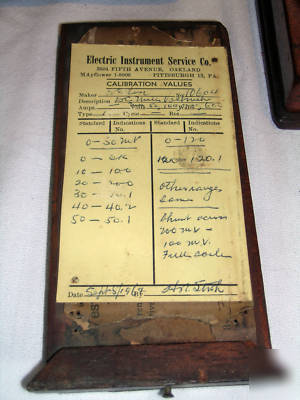 Electric Instrument Service Co.
3804 FIFTH AVENUE, OAKLAND
MAyflower 1-8006 PITTSBURGH 13, PA.
CALIBRATION VALUES
Maker
Description
Amps
Type Cyc Res
Standard Indications Standard Indications
No. No.
0-50 MV 0-120
0-0
10-10.0 120 120.1
20-
30- Other ranges
40-40.2 Same
50-50.1 Shunt across
200 MV -
100 M.V.
Full scale
Date Sept 3/1964